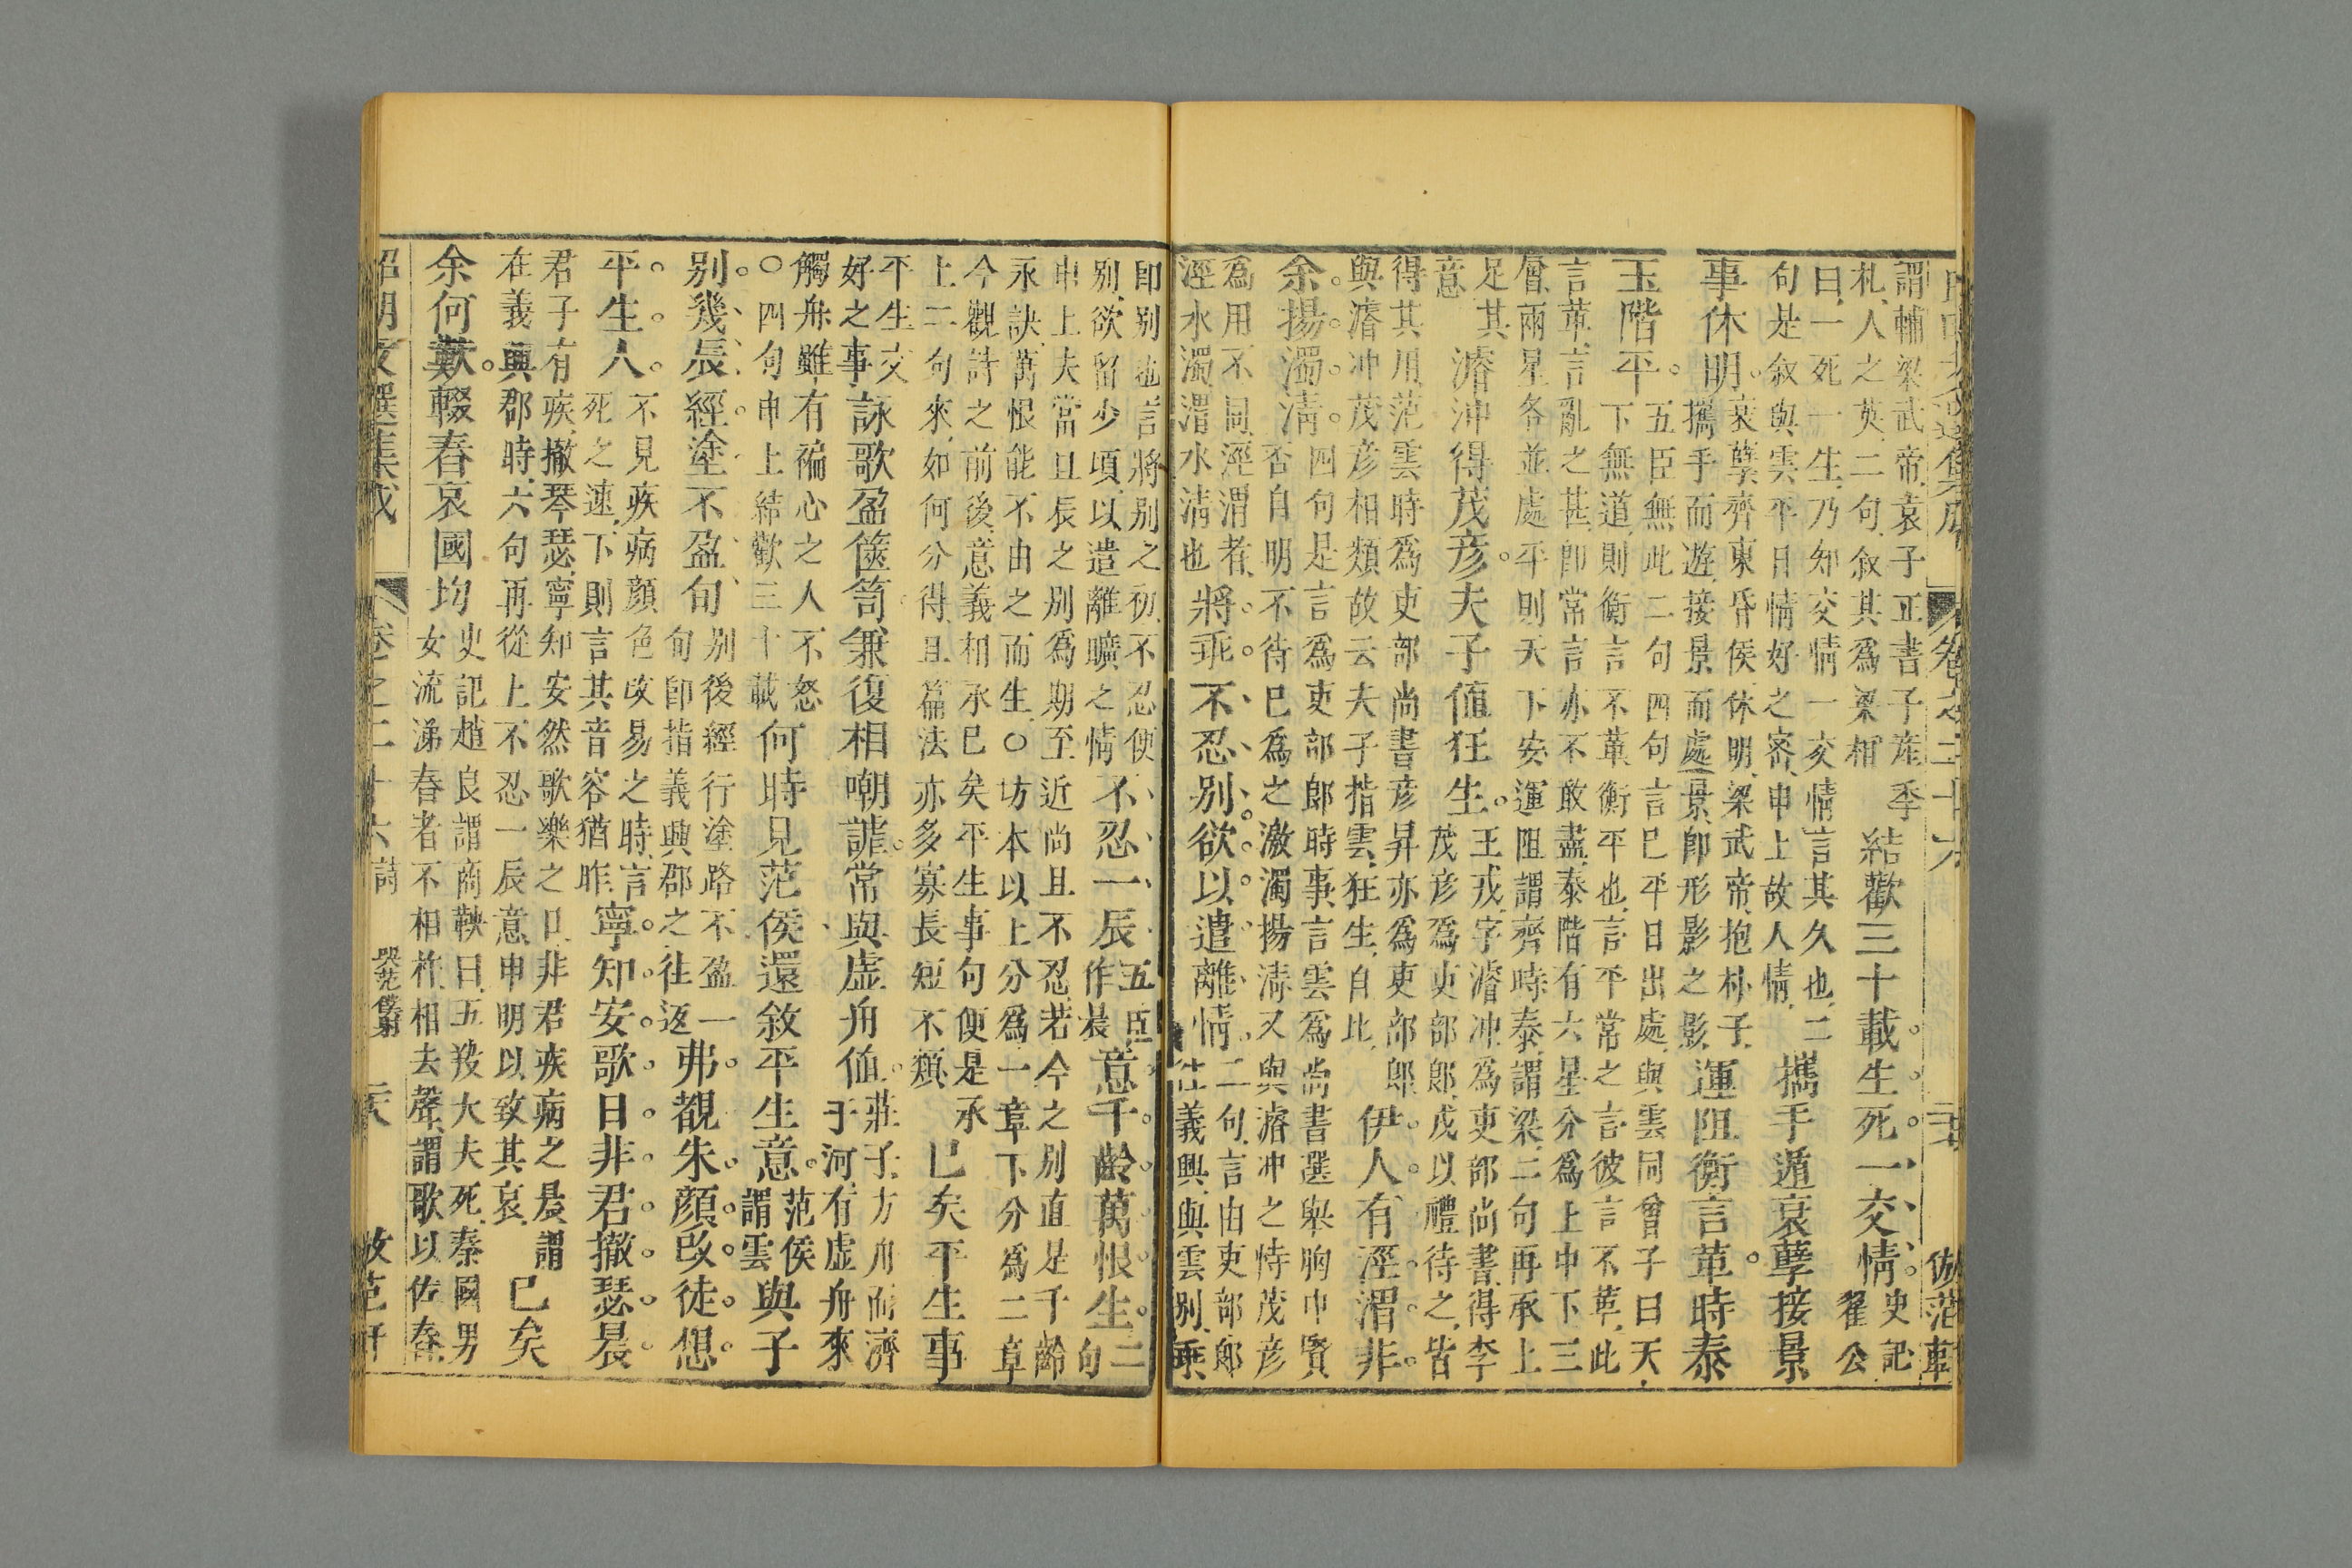 謂輔梁武帝袁子正書子產季
札人之英二句叙其爲梁相
結歡三十載生死一交情
史記翟公
曰一死一生乃知交情一交情言其久也二
句是叙與雲平日情好之密申上故人情
攜手遁衰孽接景
事休明
衰孽齊東昏侯休明梁武帝抱朴子
攜手而遊接景而處景卽形影之影
運阻衡言革時泰
玉階平
五臣無此二句四句言已平日出處與雲同曾子曰天
下無道則衡言不革衡平也言平常之言彼言不革此
言革言亂之甚卽常言亦不敢盡泰階有六星分爲上中下三
層兩星各並處平則天下安運阻謂齊時泰謂梁二句再承上
足其
意
濬沖得茂彥夫子值狂生
王戎字濬沖爲吏部尚書得李
茂彥爲吏部郞戎以禮待之皆
得其用范雲時爲吏部尚書彥昇亦爲吏部郞
與濬沖茂彥相類故云夫子指雲狂生自比
伊人有涇渭非
余揚濁清
四句是言爲吏部郞時事言雲爲尚書選舉胸中賢
否自明不待已爲之激濁揚清又與濬沖之恃茂彥
爲用不同涇渭者
涇水濁渭水清也
將乖不忍别欲以遣離情
二句言由吏部郞
往義興與雲别乘
卽别也言將别之初不忍便
别欲留少頃以遣離曠之情
不忍一辰意千齡萬恨生
五臣
作晨
二
句
申上夫當且辰之别爲期至近尚且不忍若今之别直是千齡
永訣萬恨能不由之而生○坊本以上分爲一章下分爲二章
今觀詩之前後意義相承已矣平生事句便是承
上二句來如何分得且篇法亦多寡長短不類
已矣平生事
平生交
好之事
詠歌盈篋笥兼復相嘲謔常與虛舟值
莊子方舟而濟
于河有虛舟來
觸舟雖有褊心之人不怒
○四句申上結歡三十載
何時見范侯還敘平生意
范侯
謂雲
與子
别幾辰經塗不盈旬
别後經行塗路不盈一
旬卽指義興郡之往返
弗覩朱顏改徒想
平生人
不見疾病顏色改易之時言
死之速下則言其音容猶昨
寧知安歌日非君撤瑟晨
君子有疾撤琴瑟寧知安然歌樂之日非君疾病之晨謂
在義興郡時六句再從上不忍一辰意申明以致其哀
已矣
余何歎輟舂哀國均
史記趙良謂商鞅曰五羖大夫死秦國男
女流涕舂者不相杵相去聲謂歌以佐舂
昭明文選集成
卷之二十六
詩
哭范僕射